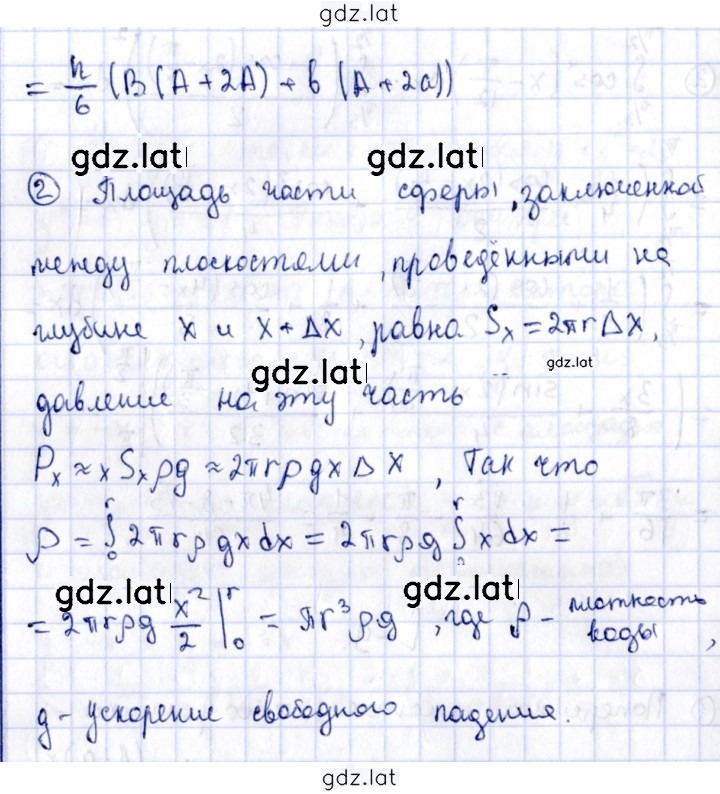 gdz.lat
= h/6 (B (A + 2A) + b (A + 2a))
gdz.lat gdz.lat
② Площадь части сферы, заключенной
между плоскостями, проведёнными на
глубине x и x + Δx, равна Sₓ = 2πrΔx,
gdz.lat gdz.lat
давление на эту часть
Pₓ ≈ x Sₓ ρg ≈ 2πrρgxΔx, так что
P = ∫₀ʳ 2πrρgxdx = 2πrρg ∫₀ʳ xdx =
gdz.lat gdz.lat
= 2πrρg x²/2 |₀ʳ = πr³ρg, где ρ - плотность воды,
g - ускорение свободного падения.
gdz.lat